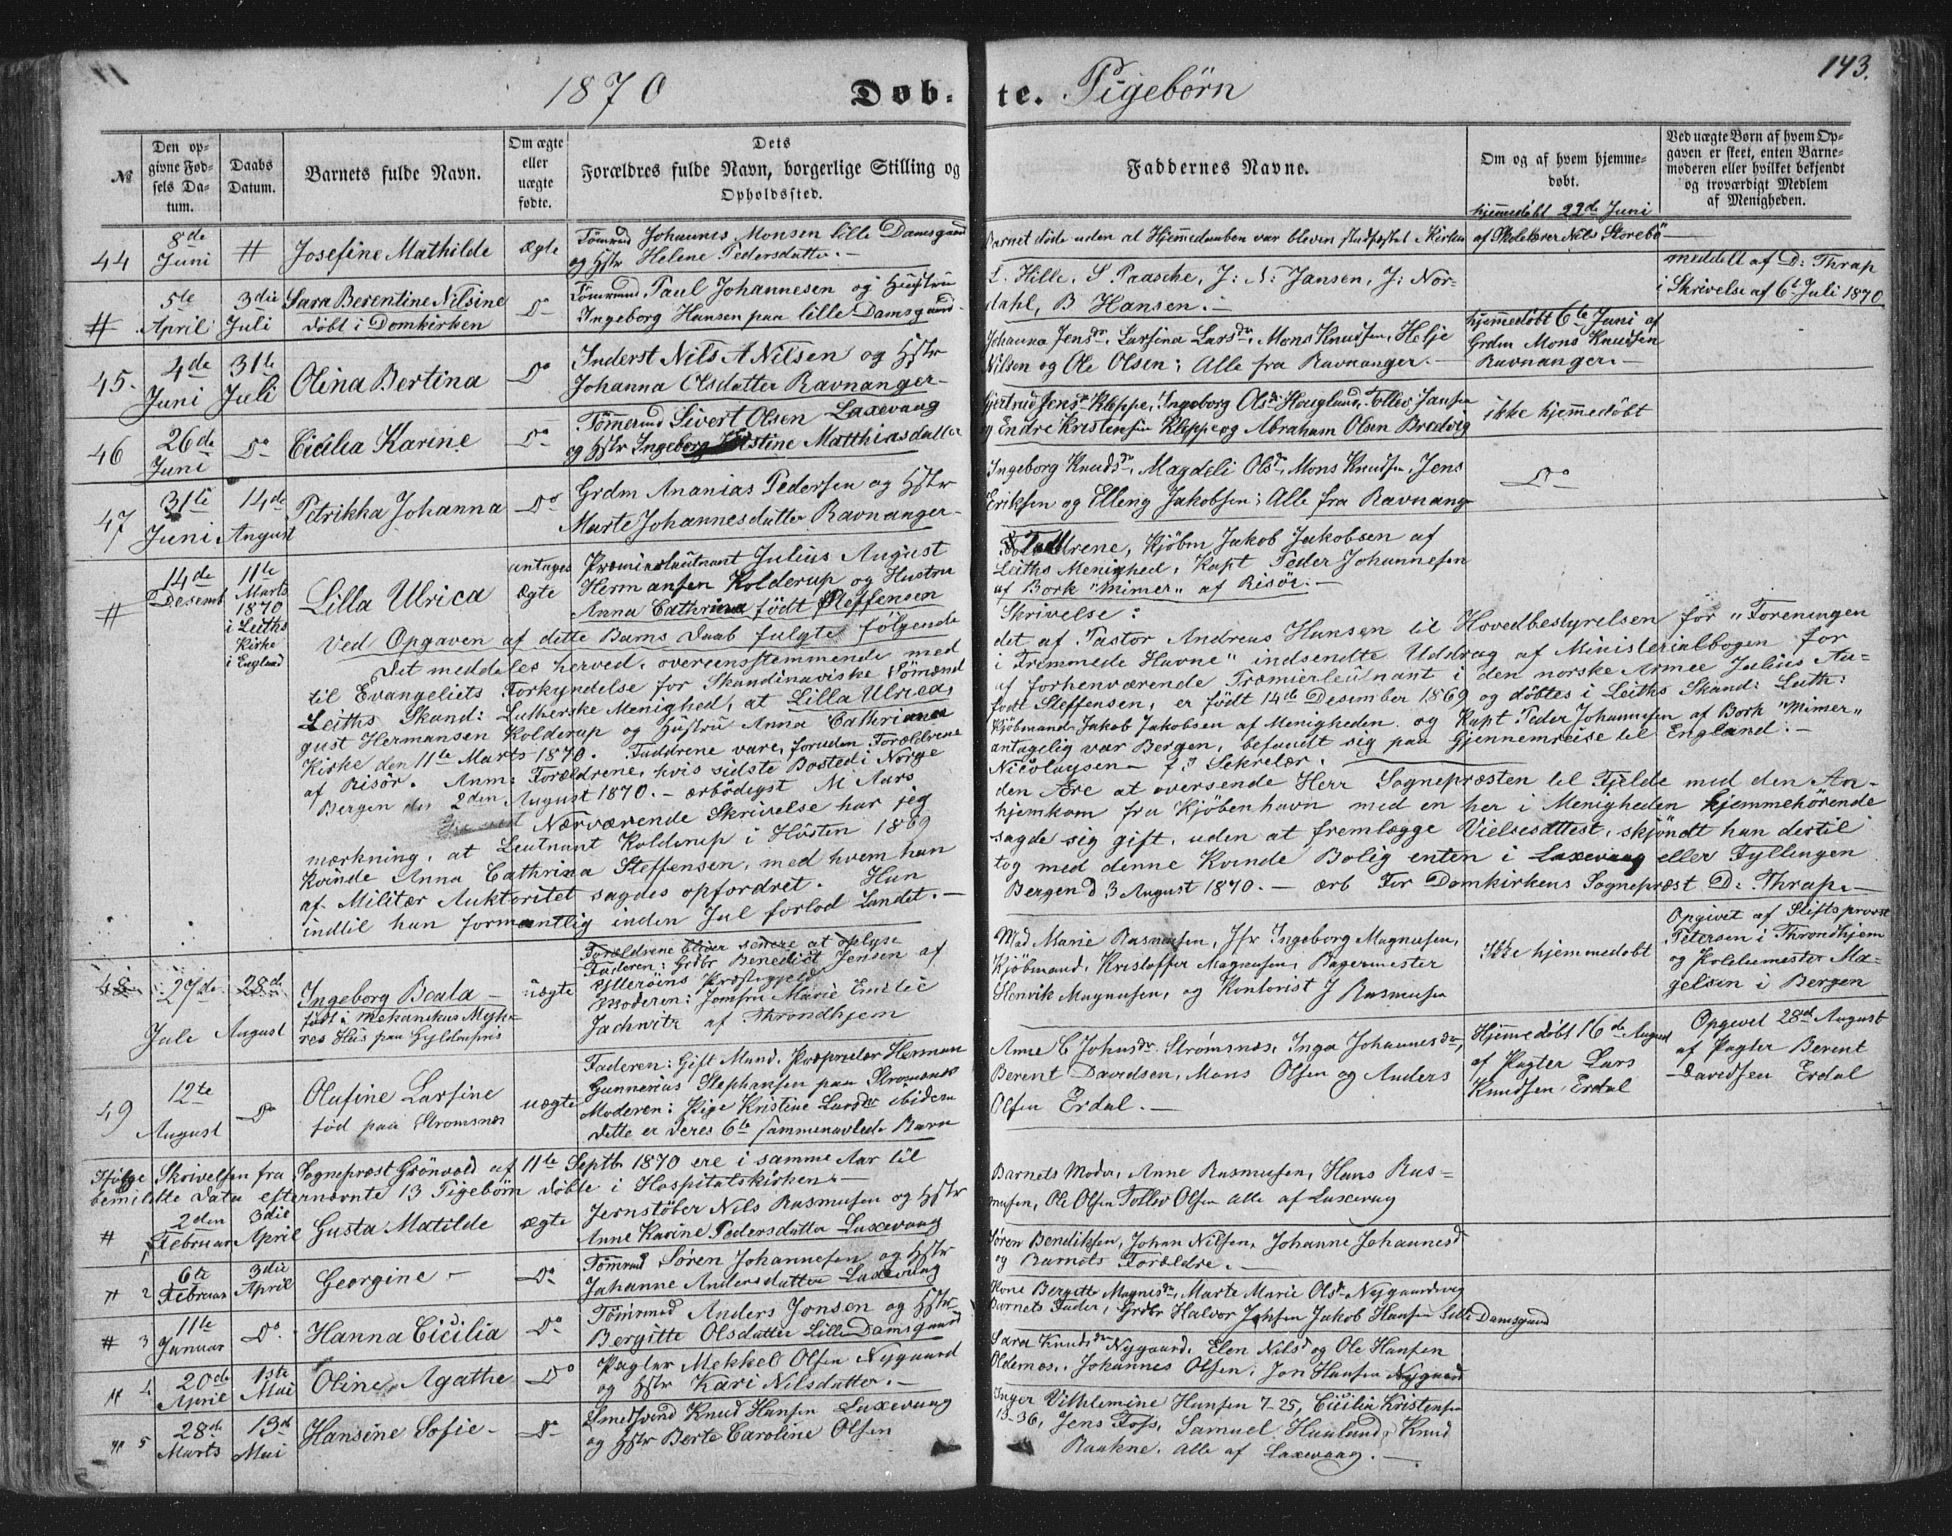 1870 Døb-te. Pigebørn 143.
№
Den opgivne Fødsels Datum.
Daabs Datum.
Barnets fulde Navn.
Om ægte eller uægte fødte.
Dets Forældres fulde Navn, borgerlige Stilling og Opholdssted.
Faddernes Navne.
Om og af hvem hjemmedøbt.
Ved uægte Børn af hvem Opgaven er skeet, enten Barnemoderen eller hvilket bekjendt og troværdigt Medlem af Menigheden.
44
8de Juni
#
Josefine Mathilde
ægte
Tømmd Johannes Monsen lille Damsgaard
og Hstr Helene Pedersdatter.—
Barnet døde uden at Hjemmedaaben var bleven stadfæstet i Kirken
hjemmedøbt 22de Juni
af Skolelærer Nils Storebø
#
5te April
3die Juli
Sara Berentine Nilsine
døbt i Domkirken
Do
Tømmd Paul Johannesen og Hustru
Ingeborg Hansen paa lille Damsgaard.
L. Hille, S Paasche, J: N: Jansen, J: Nor-
dahl, B Hansen.—
meddelt af D: Thrap
i Skrivelse af 6te Juli 1870
45.
4de Juni
31te Juli
Olina Bertina
Do
Inderst Nils A Nilsen og Hstr
Johanna Olsdatter Ravnanger-
Johanna Jensdr, Larsina Larsdr, Mons Knudsen, Helje
Nilsen og Ole Olsen; Alle fra Ravnanger.—
hjemmedøbt 6te Juni af
Grdm Mons Knudsen
Ravnanger.—
46
26de Juni
Do
Cicilia Karine
Do
Tømmermd Sivert Olsen Laxevaag
og Hstr Ingeborg Kristine Matthiasdatter
Gjertrud Jensdr Kleppe, Ingeborg Olsdr Houglund, Tollev Jansen
og Endre Kristensen Kleppe og Abraham Olsen Bredvig
ikke hjemmedøbt
47
31te Juni
14de August
Petrikka Johanna
Do
Grdm Ananias Pedersen og Hstr
Marte Johannesdatter Ravnanger-
Ingeborg Knudsdr, Magdeli Olsdr, Mons Knudsen, Jens
Eriksen og Elleng Jakobsen; Alle fra Ravnang
Do
#
14de Desemb
11te Marts 1870 i Leiths Kirke i England
Lilla Ulrica
antages ægte
Premierleutnant Julius August
Hermansen Kolderup og Hustru
Anna Cathrina født Steffensen
Faddrene, Kjøbm Jakob Jakobsen af
Leiths Menighed, Kapt Peder Johannesen
af Bork "Mimer" af Risør.—
Ved Opgaven af dette Barns Daab fulgte følgende Skrivelse:
Det meddeles herved, overeensstemmende med det af Pastor Andreas Hansen til Hovedbestyrelsen for "Foreningen
til Evangeliets Forkyndelse for Skandinaviske Sømænd i Fremmede Havne" indsendte Uddrag af Ministerialbogen for
Leiths Skand: Lutherske Menighed, at Lilla Ulrica, af forhenværende Premierleutnant i den norske Armee Julius Au-
gust Hermansen Kolderup og Hustru Anna Cathrianea født Steffensen, er født 14de Desember 1869 og døbtes i Leiths Skand: Luth:
Kirke den 11te Marts 1870. Faddrene vare, foruden Forældrene Kjøbmand Jakob Jakobsen af Menigheden og Kapt Peder Johannesen af Bork "Mimer"
af Risør. Anm: Forældrene, hvis sidste Bosted i Norge antagelig var Bergen, befandt sig paa Gjennemreise til England.—
Bergen den 2den August 1870.— ærbødigst M Aars Nicolaysen — f: J Sekretær.
Nærværende Skrivelse har jeg den Ære at oversende Herr Sognepræsten til Fjelde med den An-
mærkning, at Leutnant Kolderup i Høsten 1869 hjemkom fra Kjøbenhavn med en her i Menigheden hjemmehørende
Kvinde Anna Cathrina Steffensen, med hvem han sagde sig gift, uden at fremlægge Vielsesattest, skjøndt han dertil
af Militær Auktoritet sagdes opfordret. Hun tog med denne Kvinde Bolig enten i Laxevaag eller Fyllingen
indtil han formentlig inden Jul forlod Landet.— Bergen d 3 August 1870.— ærb Før Domkirkens Sognepræst D: Thrap.—
48
27de Jule
28de August
Ingeborg Beata —
født i Mekanikus Myh-
res Hus paa Gyldenpris
uægte
Forældrene bliver senere at oplyse
Faderen: Grdbr Benedict Jensen af
Ytterøens Præstegjeld
Moderen: Jomfru Marie Emilie
Jachwitz af Throndhjem
Mad Marie Rasmusen, Jfr Ingeborg Magnusen,
Kjøbmand, Kristoffer Magnusen, Bagermester
Henrik Magnusen, og Kontorist J Rasmusen
Ikke hjemmedøbt
Opgivet af Stiftsprovst
Petersen i Throndhjem
og Politimester Ma-
gelsen i Bergen
49
12te August
Do
Olufine Larsine
fød paa Stromsnes
uægte
Faderen: Gift Mand, Proprietær Herman
Gunnerius Stephansen paa Stromsnes
Moderen: Pige Kristine Larsdr ibidem
dette er deres 6te sammenavlede Barn
Anne C Johnsdr Strømsnes, Inga Johannesdr,
Berent Davidsen, Mons Olsen og Anders
Olsen Erdal.—
Hjemmedøbt 16de August
af Pagter Lars
Knudsen Erdal
Opgivet 28de August
af Pagter Berent
Davidsen Erdal
Ifølge Skrivelsen fra Sognepræst Grönvold af 11te Septb 1870 ere i samme Aar til
bemeldte Data efternævnte 13 Pigebørn døbte i Hospitalskirken.—
# 1
2den Februar
3die April
Gusta Matilde
ægte
Jernstøber Nils Rasmusen og Hstr
Anne Karine Pedersdatter Laxevaag
Barnets Moder, Anne Rasmusen, Hans Ras-
musen, Ole Olsen Tollev Olsen alle af Laxevaag
# 2
6te Februar
3die April
Georgine —
Do
Tømmd Søren Johannesen og Hstr
Johanne Andersdatter Laxevaag
Søren Bendiksen, Johan Nilsen, Johanne Johannesd
og Barnets Forældre.—
# 3
11te Januar
Do.
Hanna Cicilia
Do
Tømmmd Anders Jonsen og Hstr
Bergitte Olsdatter Lille Damsgaard
Kone Bergitte Magnisdr, Marte Marie Olsdr Nygaardsvig
Barnets Fader, Grdbr Halvor Johsen Jakob Hansen Lille Damsgaard
# 4
20de April
1ste Mai
Oline Agathe
Do
Pagter Mekkel Olsen Nygaard
og Hstr Kari Nilsdatter.—
Sara Knudsdr Nygaard, Elen Nilsd og Ole Hansen
Oldernes, Johannes Olsen, Jon Hansen Nygaard
# 5
28de Marts
13d Mai
Hansine Sofie —
Do
Smedsvend Knud Hansen Laxevaag
og Hstr Berte Caroline Olsen
Inger Vilhelmine Hansen 7-25, Cicilia Kristensen
13-36, Jens Foss, Samuel Haaland, Knud
Raukne. Alle af Laxevaag.—